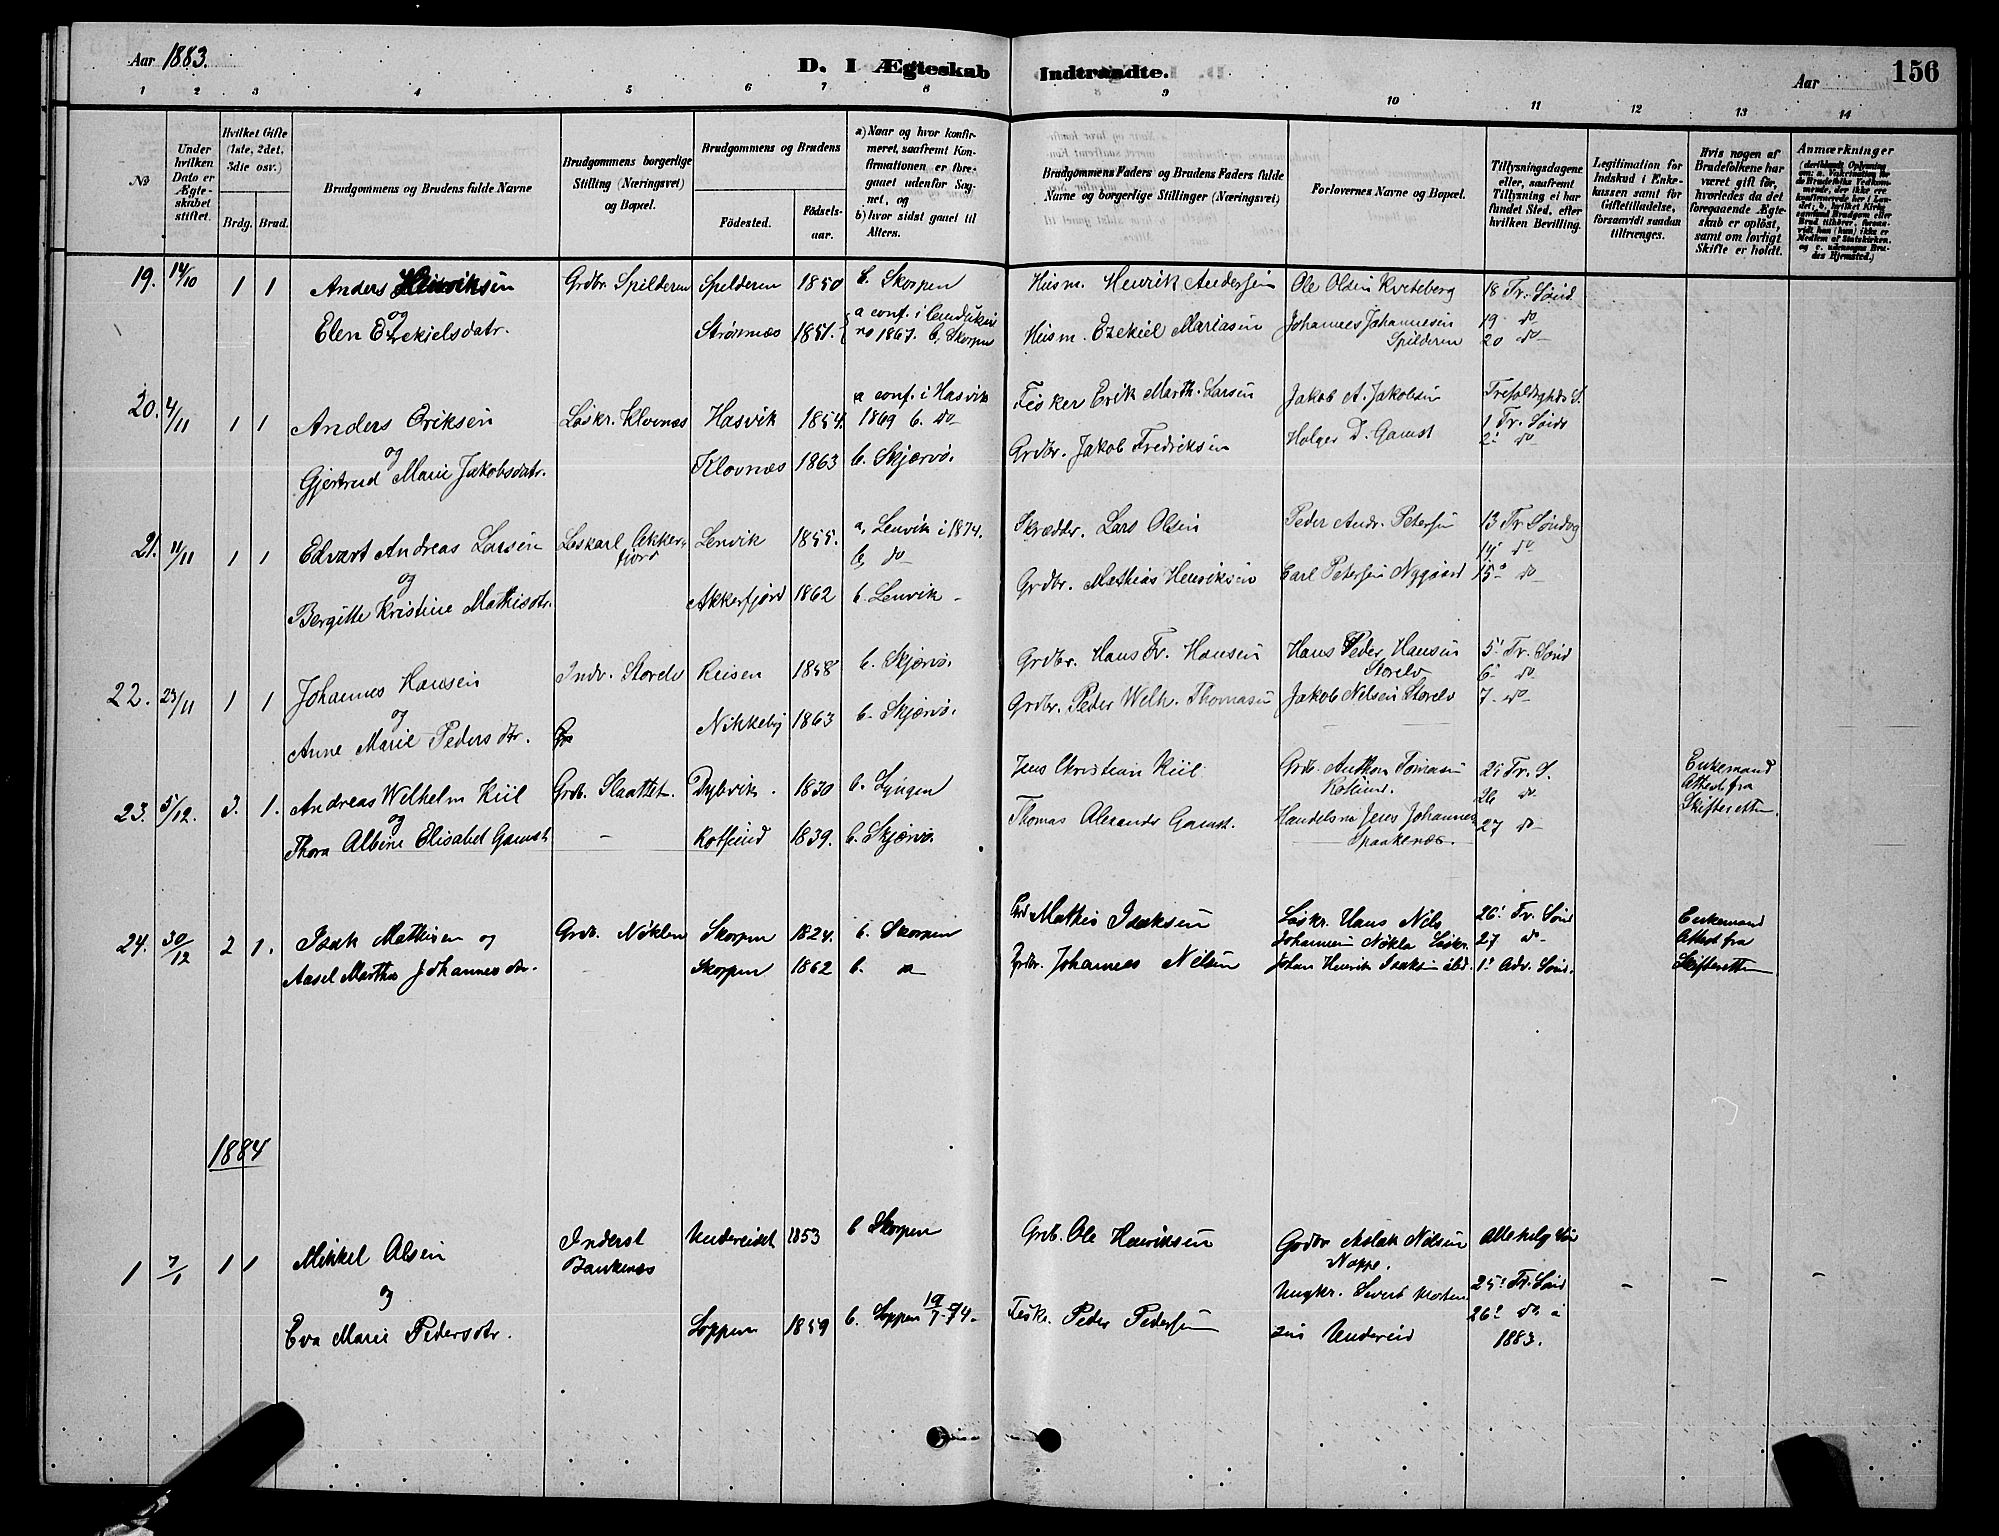 Aar 1883.
D. I Ægteskab Indtraadte.
Aar
156
1 2 3 4 5 6 7 8 9 10 11 12 13 14
No
Under hvilken Dato er Ægteskabet stiftet.
Hvilket Gifte (1ste, 2det, 3die osv.)
Brdg. Brud.
Brudgommens og Brudens fulde Navne
Brudgommens borgerlige Stilling (Næringsvei) og Bopæl.
Brudgommens og Brudens
Födested.
Födsels-aar.
a) Naar og hvor konfirmeret, saafremt Konfirmationen er foregaaet udenfor Sognet, og
b) hvor sidst gaaet til Alters.
Brudgommens Faders og Brudens Faders fulde Navne og borgerlige Stillinger (Næringsvei)
Forlovernes Navne og Bopæl.
Tillysningsdagene eller, saafremt Tillysning ei har fundet Sted, efter hvilken Bevilling.
Legitimation for Indskud i Enkekassen samt for Giftetilladelse, forsaavidt saadan tiltrænges.
Hvis nogen af Brudefolkene har været gift før, hvorledes da det foregaaende Ægteskab er oplöst, samt om lovligt Skifte er holdt.
Anmærkninger
19. 14/10 1 1 Anders Henriksen Grdbr. Spilderen Spilderen 1850 b. Skorpen Husm. Henrik Andersen Ole Olsen Kveteberg 18 Tr. Sønd.
og
Elen Ezekielsdatr. Strømnæs 1851. a conf. i
1867. b, Skorpen Husm. Ezekiel Mariasen Johannes Johannesen 19 do
Spilderen 20 do
20. 4/11 1 1 Anders Eriksen Løskr. Klovnæs Hasvik 1854. a conf. i Hasvik
1869 b. do Fisker Erik Marth. Larsen Jakob A. Jakobsen Trefoldigheds S.
og
Gjertrud Marie Jakobsdatr. Klovnæs 1863 b. Skjærvø. Grdbr. Jakob Fredriksen Holger D. Gamst 1 Tr. Sønds
2. do
21. 11/11 1 1 Edvart Andreas Larsen Løskarl Akkerfjord Lenvik 1855. a, Lenvik i 1874.
b, do Skrædder. Lars Olsen Peder Andr. Petersen 13 Tr. Søndag
14 do
og
Bergitte Kristine Mathisdtr. Akkerfjord 1862 b. Lenvik - Grdbr. Mathias Henriksen Carl Petersen Nygaard 15 do
22. 23/11 1 1 Johannes Hansen Indr. Storelv Reisen 1858 b. Skjærvø. Grdbr. Hans Fr. Hansen Hans Peder Hansen 5 Tr. Sønd
Storelv 6 do
og
Anne Marie Pedersdtr. Nikkeby 1863 b. Skjærvø. Grdbr. Peder Welh. Thomasen Jakob Nelsen Storelv 7 do
23. 5/12. 3. 1. Andreas Wilhelm Kiil Grdb. Slaattet. Dybvik. 1830 b. Lyngen Jens Christian Kiil Grdb. Anthon Tomasen
Rotsund. Tr. S.
26 do Enkemand
Attest fra
Skifteretten
og
Thora Albine Elisabet Gamst - Rotsund 1839. b. Skjærvø. Thomas Alexander Gamst. Handelsm Jens Johannes
Spaakenæs. 27 do
24. 30/12 2 1. Isak Mathisen og Grdb. Nöklen Skorpen 1824. b. Skorpen Grd Mathis Isaksen Løskr. Hans Nils 26. Tr. Sønd Enkemand
Johannesen Nökla Løskr. 27 do Attest fra
Aasel Martha Johannesdtr. - Skorpen 1862 b. do Grdbr. Johannes Nilsen Johan Henrik Isaksen 1. Adv. Sønd. Skifteretten
1884
1 7/1 1 1 Mikkel Olsen Inderst
Baukenæs Undereidet 1853 b Skorpen Grdb. Ole Henriksen Grdbr Aslak Nilsen
Noppe. Allehelg
og
Eva Marie Pedersdtr. Loppen 1859 b. Loppen 19/7-74. Fisk. Peder Pedersen Ungkr. Sivert
Undereid 25. Tr. Sønd
26. do i
1883. - - -